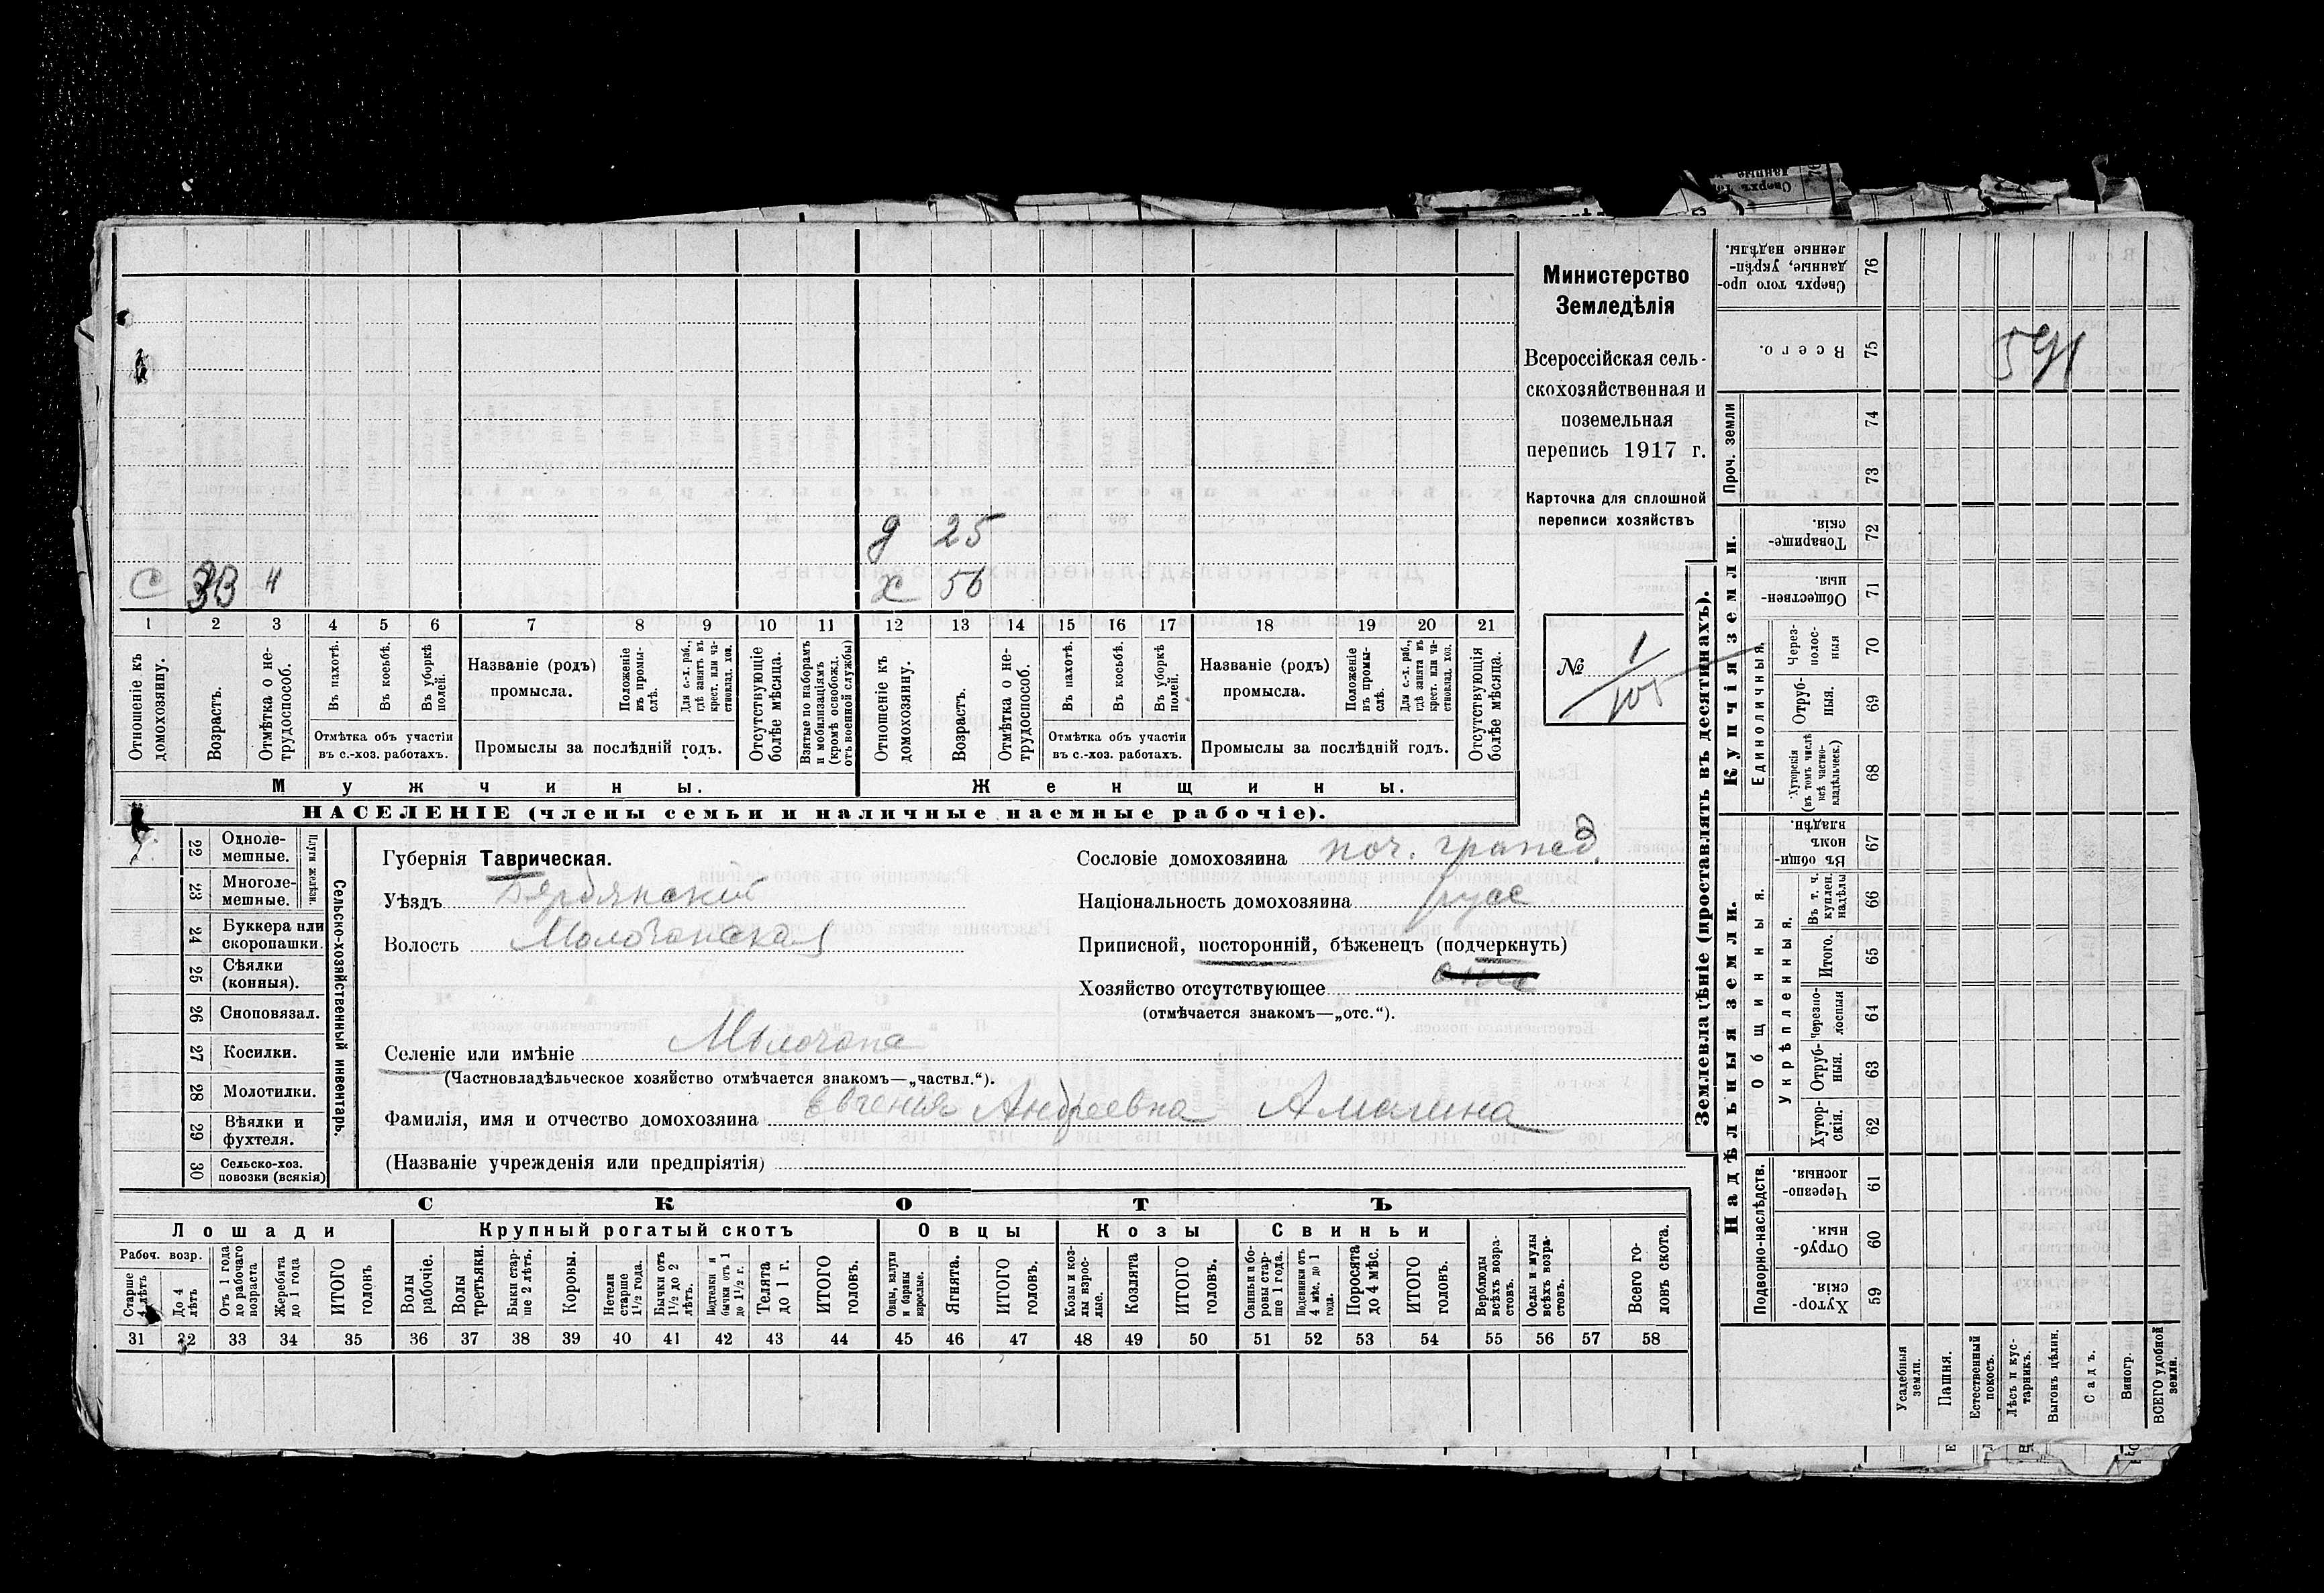 Министерство
Земледѣлія
Всероссійская сель-
скохозяйственная и
поземельная
перепись 1917 г.
Карточка для сплошной
переписи хозяйствъ
№ 1/105
д 25
с 33 н
х 56
1 2 3 4 5 6 7 8 9 10 11 12 13 14 15 16 17 18 19 20 21
Отношеніе къ домохозяину.
Возрастъ.
Отмѣтка о не-трудоспособ.
Въ пахотѣ.
Въ косьбѣ.
Въ уборкѣ полей.
Отмѣтка объ участіи
въ с.-хоз. работахъ.
Названіе (родъ)
промысла.
Положеніе въ промы-слѣ.
Для с.-х. раб., гдѣ занятъ въ крест. или ча-стновлад. хоз.
Промыслы за послѣдній годъ.
Отсутствующіе болѣе мѣсяца.
Взятые по наборамъ и мобилизаціямъ (кромѣ освобожд. отъ военной службы)
Отношеніе къ домохозяину.
Возрастъ.
Отмѣтка о не-трудоспособ.
Въ пахотѣ.
Въ косьбѣ.
Въ уборкѣ полей.
Отмѣтка объ участіи
въ с.-хоз. работахъ.
Названіе (родъ)
промысла.
Положеніе въ промы-слѣ.
Для с.-х. раб., гдѣ занята въ крест. или ча-стновлад. хоз.
Промыслы за послѣдній годъ.
Отсутствующія болѣе мѣсяца.
Мужчины.
Женщины.
НАСЕЛЕНІЕ (члены семьи и наличные наемные рабочіе).
22 Одноле-мешные.
23 Многоле-мешные.
Плуги желѣзн.
24 Буккера или скоропашки.
25 Сѣялки (конныя).
26 Сноповязал.
27 Косилки.
28 Молотилки.
29 Вѣялки и фухтеля.
30 Сельско-хоз. повозки (всякія)
Сельско-хозяйственный инвентарь.
Губернія Таврическая.
Уѣздъ Бердянский
Волость Молочанская
Сословіе домохозяина поч. гражд.
Національность домохозяина русс
Приписной, посторонній, бѣженецъ (подчеркнуть)
Хозяйство отсутствующее
(отмѣчается знакомъ—„отс.“).
Селеніе или имѣніе Молочна
(Частновладѣльческое хозяйство отмѣчается знакомъ—„частвл.“).
Фамилія, имя и отчество домохозяина Евгения Андреевна Амалина
(Названіе учрежденія или предпріятія)
СКОТЪ
Лошади
Крупный рогатый скотъ
Овцы
Козы
Свиньи
Рабоч. возр.
Старше 4 лѣтъ
До 4 лѣтъ
Отъ 1 года до рабочаго возраста
Жеребята до 1 года
ИТОГО головъ
Волы рабочіе.
Волы третьяки.
Быки стар-ше 2 лѣтъ.
Коровы.
Нетели старше 1½ года.
Бычки отъ 1½ до 2 лѣтъ.
Подтелки и бычки отъ 1 до 1½ г.
Телята до 1 г.
ИТОГО головъ.
Овцы, валухи и бараны взрослые.
Ягнята.
ИТОГО головъ.
Козы и коз-лы взрос-лые.
Козлята
ИТОГО головъ.
Свиньи и бо-ровы стар-ше 1 года.
Подсвинки отъ 4 мѣс. до 1 года.
Поросята до 4 мѣс.
ИТОГО головъ.
Верблюды всѣхъ возра-стовъ.
Ослы и мулы всѣхъ возра-стовъ.
Всего го-ловъ скота.
31 32 33 34 35 36 37 38 39 40 41 42 43 44 45 46 47 48 49 50 51 52 53 54 55 56 57 58
Землевладѣніе (проставлять въ десятинахъ).
Сверхъ того про-данные, укрѣп-ленные надѣлы. 76
Всего. 75
591
74
73
Проч. земли
Товарище-скія. 72
Обществен-ныя 71
Черезполос-ныя 70
Отруб-ныя. 69
Хуторскія (въ томъ числѣ всѣ частно-владѣльческ.) 68
Единоличныя.
Купчія земли.
Въ общи-номъ владѣн. 67
Въ т. ч. куплен. надѣлы 66
Итого. 65
Черезпо-лосныя 64
Отруб-ныя. 63
Хутор-скія. 62
Укрѣпленныя.
Общинныя.
Надѣльныя земли.
Черезпо-лосныя. 61
Отруб-ныя. 60
Хутор-скія. 59
Подворно-наслѣдств.
Усадебныя земли.
Пашня.
Естественный покосъ.
Лѣсъ и кус-тарникъ.
Выгонъ цѣлин.
Садъ.
Виногр.
ВСЕГО удобной земли.